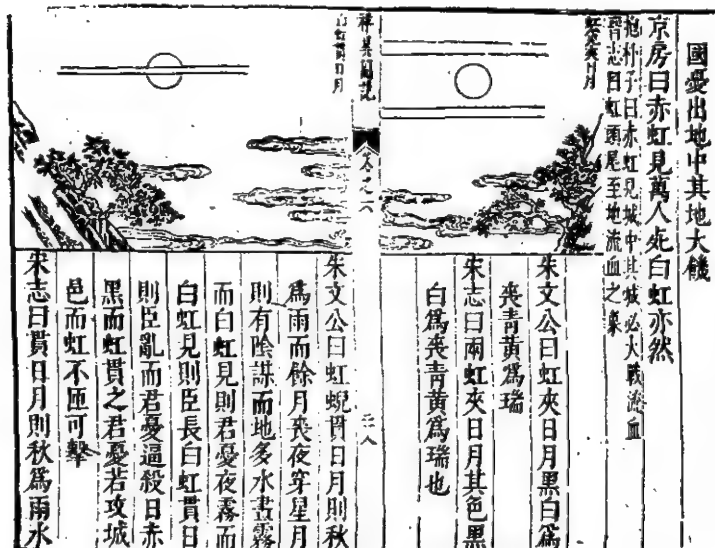 國憂出地中其地大饑
京房曰赤虹見萬人死白虹亦然
抱朴子曰赤虹見城中其城必大戰流血
晉志曰虹頭尾至地流血之象
虹夾日月
朱文公曰虹夾日月黑白爲
喪青黃爲瑞
宋志曰兩虹夾日月其色黑
白爲喪青黃爲瑞也
祥異圖說
卷之六
二八
白虹貫日月
朱文公曰虹蜺貫日月則秋
爲雨而餘月喪夜穿星月
則有陰謀而地多水晝霧
而白虹見則君憂夜霧而
白虹見則臣長白虹貫日
則臣亂而君憂逼殺日赤
黑而虹貫之君憂若攻城
邑而虹不匝可擊
宋志曰貫日月則秋爲雨水